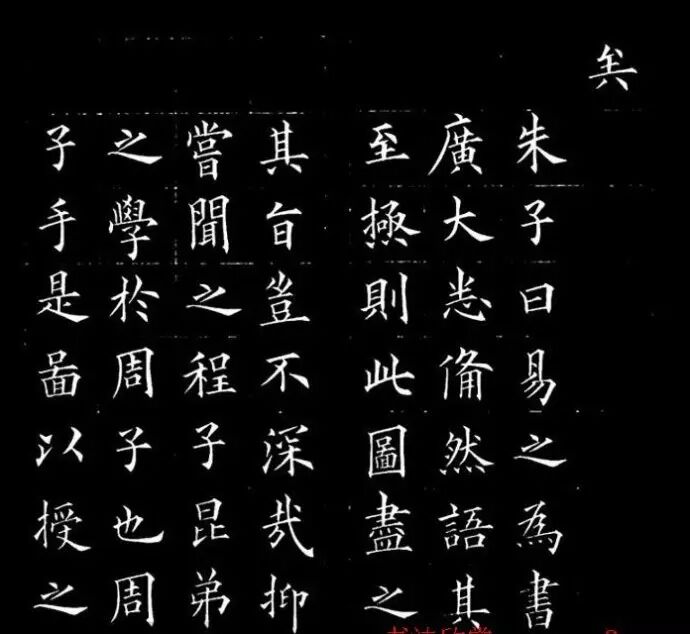 矣
朱子曰易之為書
廣大悉俻然語其
至極則此圖盡之
其旨豈不深㢤抑
嘗聞之程子昆弟
之學於周子也周
子手是啚以授之